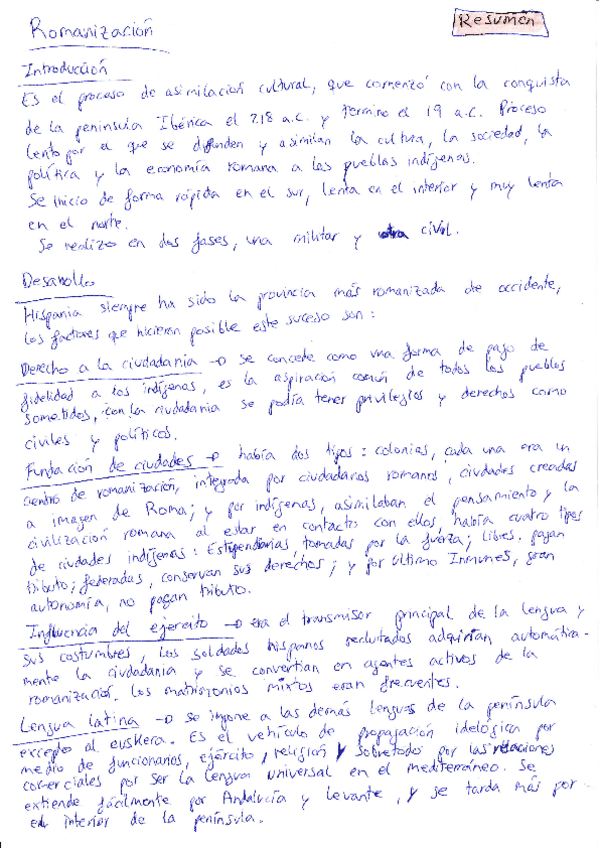 Romanización
Resumen
Introducción
Es el proceso de asimilación cultural, que comenzó con la conquista
de la peninsula Ibérica el 218 a.c. y termino el 19 a.c. Proceso
lento por el que se difunden y asimilan la cultura, la sociedad, la
política y la economía romana a los pueblos indígenas.
Se inicio de forma rápida en el sur, lenta en el interior y muy lenta
en el norte.
Se realizo en dos fases, una militar y otra civil.
Desarollo
Hispania siempre ha sido la provincia más romanizada de occidente,
los factores que hicieron posible este suceso son:
Derecho a la ciudadania → se concede como una forma de pago de
fidelidad a los indígenas, es la aspiracion común de todos los pueblos
sometidos, con la ciudadania se podía tener privilegios y derechos como
civiles y políticos.
Fundación de ciudades → había dos tipos: colonias, cada una era un
centro de romanización, integrada por ciudadanos romanos, ciudades creadas
a imagen de Roma; y por indígenas, asimilaban el pensamiento y la
civilización romana al estar en contacto con ellos, había cuatro tipos
de ciudades indígenas: Estipendiarias tomadas por la fuerza; libres. pagan
tributo; federadas, conservan sus derechos; y por último Inmunes, gran
autonomía, no pagan tributo.
Influencia del ejercito → era el transmisor principal de la lengua y
sus costumbres, los soldados hispanos reclutados adquirían automática-
mente la ciudadania y se convertian en agentes activos de la
romanización. Los matrimonios mixtos eran frecuentes.
Lengua latina → se impone a las demás lenguas de la península
excepto al euskera. Es el vehículo de propagación ideológica por
medio de funcionarios, ejército, religión y sobretodo por las relaciones
comerciales por ser la lengua universal en el mediterráneo. Se
extiende fácilmente por Andalucía y Levante, y se tarda más por
el interior de la península.